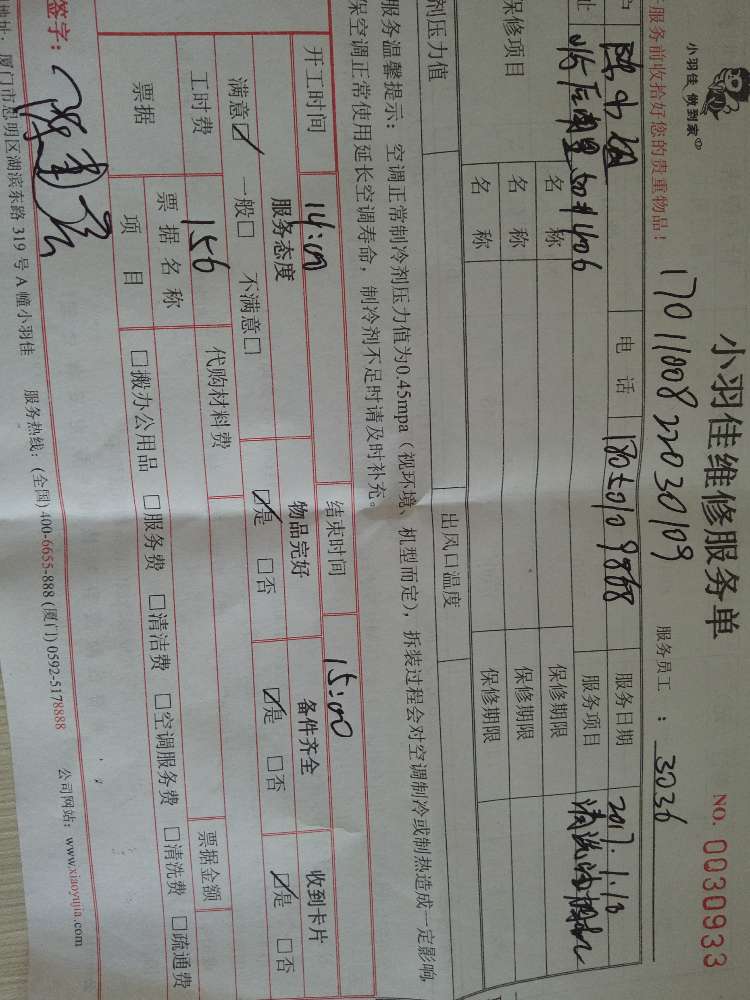 小羽佳 做到家
小羽佳维修服务单
NO. 0030933
服务前收拾好您的贵重物品！
1701100822030109
服务员工：3036
户
电 话
服务日期
2017.1.10
址
1406
服务项目
保修项目
名 称
保修期限
名 称
保修期限
名 称
保修期限
剂压力值
出风口温度
服务温馨提示：空调正常制冷剂压力值为0.45mpa（视环境、机型而定），拆装过程会对空调制冷或制热造成一定影响
保空调正常使用延长空调寿命，制冷剂不足时请及时补充。
开工时间
14:00
结束时间
15:00
服务态度
物品完好
备件齐全
收到卡片
满意☑ 一般□ 不满意□
☑是 □否
☑是 □否
☑是 □否
工时费
156
代购材料费
票据
票据名称
票据金额
项 目
□搬办公用品 □服务费 □清洁费 □空调服务费 □清洗费 □疏通费
签字：
地址：厦门市思明区湖滨东路 319 号 A 幢小羽佳 服务热线：(全国) 400-6655-888 (厦门) 0592-5178888 公司网站：www.xiaoyujia.com